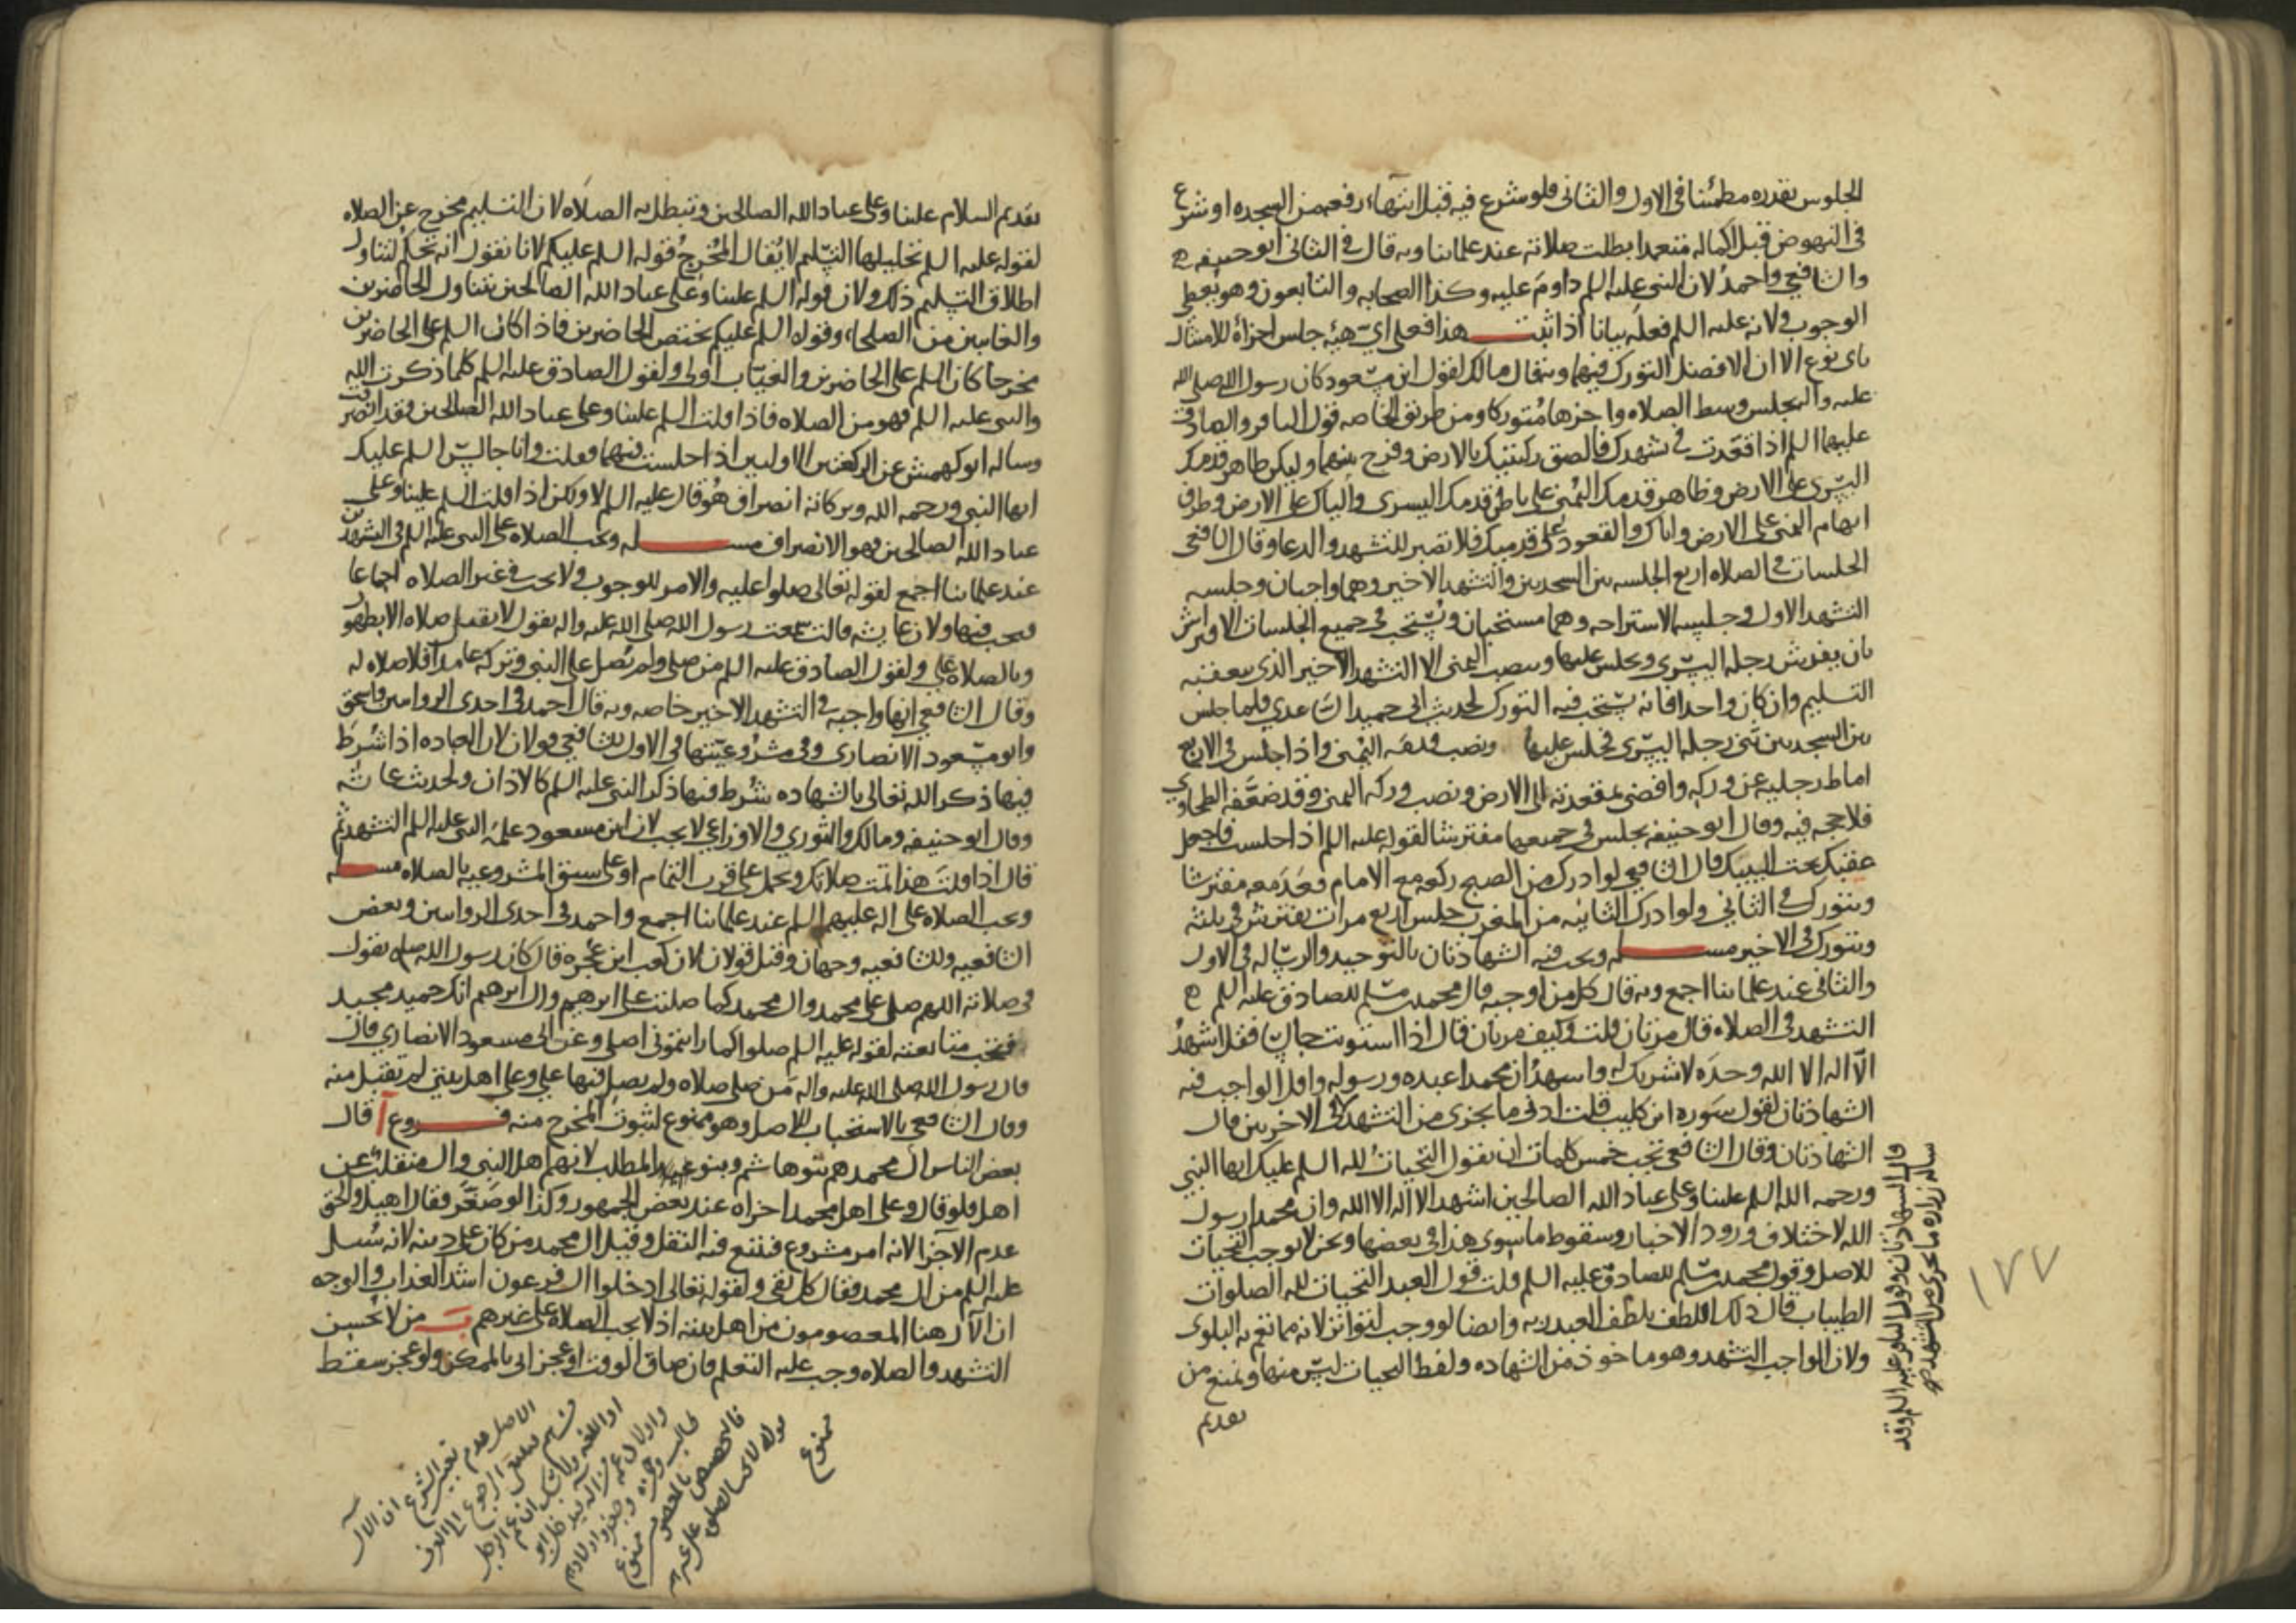 الجلوس بقدره مطمئنا في الاول والثاني فلو شرع فيه قبل انتهاء رفعه من السجده او شرع
في النهوض قبل اكماله متعمدا بطلت صلاته عند علمائنا وبه قال في الثاني ابو حنيفه
والشافعي واحمد لان النبي عليه السلم داوم عليه وكذا الصحابه والتابعون وهو يعطي
الوجوب ولانه عليه السلم فعله بيانا اذا ثبت هذا فعلى اي هيه جلس اجزاه للامتثال
باي نوع الا ان الافضل التورك فيهما وبه قال مالك لقول ابن مسعود كان رسول الله صلى الله
عليه واله يجلس وسط الصلاه واخرها متوركا ومن طريق الخاصه قول الباقر والصادق
عليهما السلم اذا قعدت في تشهدك فالصق ركبتيك بالارض وفرج بينهما وليكن ظاهر قدمك
اليسرى على الارض وظاهر قدمك اليمنى على باطن قدمك اليسرى والياك على الارض وطرف
ابهام اليمنى على الارض واياك والقعود على قدميك فلا تصبر للتشهد والدعا وقال الشافعي
الجلسات في الصلاه اربع الجلسه بين السجدتين والتشهد الاخير وهما واجبان وجلسه
التشهد الاول وجلسه الاستراحه وهما مستحبان ويستحب في جميع الجلسات الافتراش
بان يفرش رجله اليسرى ويجلس عليها وينصب اليمنى الا التشهد الاخير الذي يعقبه
التسليم وان كان واحدا فانه يستحب فيه التورك لحديث ابي حميد الساعدي فلما جلس
بين السجدتين ثنى رجله اليسرى فجلس عليها ونصب قدمه اليمنى واذا جلس في الاربع
اماط رجليه عن وركه وافضى بمقعدته الى الارض ونصب وركه اليمنى وقد ضعفه الطحاوي
فلا حجه فيه وقال ابو حنيفه يجلس في جميعها مفترشا لقوله عليه السلم اذا جلست فاجعل
عقبك تحت اليتيك قال الشافعي لو ادرك من الصبح ركعه مع الامام قعد معه مفترشا
ويتورك في الثاني ولو ادرك الثانيه من المغرب جلس اربع مرات يفترش في ثلثه
ويتورك في الاخير مسـله ويجب فيه الشهادتان بالتوحيد والرساله في الاول
والثاني عند علمائنا اجمع وبه قال كل من اوجبه قال محمد بن مسلم للصادق عليه السلم
التشهد في الصلاه قال مرتان قلت وكيف مرتان قال اذا استويت جالسا فقل اشهد
الا اله الا الله وحده لا شريك له واشهد ان محمدا عبده ورسوله واقل الواجب فيه
الشهادتان لقول سوره ابن كليب قلت ادنى ما يجزي من التشهد في الاخرين قال
الشهادتان وقال الشافعي تجب خمس كلمات ان يقول التحيات لله السلم عليك ايها النبي
ورحمه الله السلم علينا وعلى عباد الله الصالحين اشهد الا اله الا الله وان محمدا رسول
الله لاختلاف ورود الاخبار وسقوط ما سوى هذا في بعضها ونحن لا نوجب التحيات
للاصل وقول محمد بن مسلم للصادق عليه السلم قلت قول العبد التحيات لله الصلوات
الطيبات قال ذلك اللطف يلطف العبد ربه وايضا لو وجب لتواتر لانه مما تعم به البلوى
ولان الواجب التشهد وهو ماخوذ من الشهاده ولفظ التحيات ليس منها ويمنع من
تقديم
وقال الشهادتان وقول الباقر عليه السلم وقد
ساله زراره ما يجزي من التشهد
١٧٧
تقديم السلام علينا وعلى عباد الله الصالحين وتبطل به الصلاه لان التسليم مخرج عن الصلاه
لقوله عليه السلم تحليلها التسليم لا يقال المخرج قوله السلم عليكم لانا نقول انه تحكم لتناول
اطلاق التسليم ذلك ولان قوله السلم علينا وعلى عباد الله الصالحين يتناول الحاضرين
والغايبين من الصلحاء وقوله السلم عليكم يختص الحاضرين فاذا كان السلم على الحاضرين
مخرجا كان السلم على الحاضرين والغياب اولى ولقول الصادق عليه السلم كلما ذكرت الله
والنبي عليه السلم فهو من الصلاه فاذا قلت السلم علينا وعلى عباد الله الصالحين فقد انصرفت
وساله ابو كهمش عن الركعتين الاوليين اذا جلست فيهما فقلت وانا جالس السلم عليك
ايها النبي ورحمه الله وبركاته انصراف هو قال عليه السلم لا ولكن اذا قلت السلم علينا وعلى
عباد الله الصالحين فهو الانصراف مسـله وتجب الصلاه على النبي عليه السلم في التشهدين
عند علمائنا اجمع لقوله تعالى صلوا عليه والامر للوجوب ولا يجب في غير الصلاه اجماعا
فيجب فيها ولان عايشه قالت سمعت رسول الله صلى الله عليه واله يقول لا يقبل صلاه الا بطهور
وبالصلاه علي ولقول الصادق عليه السلم من صلى ولم يصل على النبي وتركه عامدا فلا صلاه له
وقال الشافعي انها واجبه في التشهد الاخير خاصه وبه قال احمد في احدى الروايتين واسحق
وابو مسعود الانصاري وفي مشروعيتها في الاول للشافعي قولان لان العباده اذا شرط
فيها ذكر الله تعالى بالشهاده شرط فيها ذكر النبي عليه السلم كالاذان ولحديث عايشه
وقال ابو حنيفه ومالك والثوري والاوزاعي لا يجب لان ابن مسعود علمه النبي عليه السلم التشهد ثم
قال اذا قلت هذا تمت صلاتك ويحمل على قرب التمام او على سبق المشروعيه بالصلاه مسـله
وتجب الصلاه على اله عليهم السلم عند علمائنا اجمع واحمد في احدى الروايتين وبعض
الشافعيه وللشافعيه وجهان وقيل قولان لان كعب ابن عجره قال كان رسول الله صلى يقول
في صلاته اللهم صل على محمد وال محمد كما صليت على ابرهيم وال ابرهيم انك حميد مجيد
فتجب متابعته لقوله عليه السلم صلوا كما رايتموني اصلي وعن ابي مسعود الانصاري قال
قال رسول الله صلى الله عليه واله من صلى صلاه ولم يصل فيها علي وعلى اهل بيتي لم تقبل منه
وقال الشافعي بالاستحباب للاصل وهو ممنوع لثبوت المخرج منه فـروع ا قال
بعض الناس ال محمد هم بنو هاشم وبنو المطلب لانهم اهل النبي وال منقلب عن
اهل فلو قال وعلى اهل محمد اجزاه عند بعض الجمهور وكذا لو صغر فقال اهيل والحق
عدم الاجزا لانه امر مشروع فيتبع فيه النقل وقيل ال محمد من كان على دينه لانه سئل
عليه السلم من ال محمد فقال كل تقي ولقوله تعالى ادخلوا ال فرعون اشد العذاب والوجه
ان الال هنا المعصومون من اهل بيته اذ لا يجب الصلاه على غيرهم ب من لا يحسن
التشهد والصلاه وجب عليه التعلم فان ضاق الوقت او عجز اتى بالممكن ولو عجز سقط
ممنوع